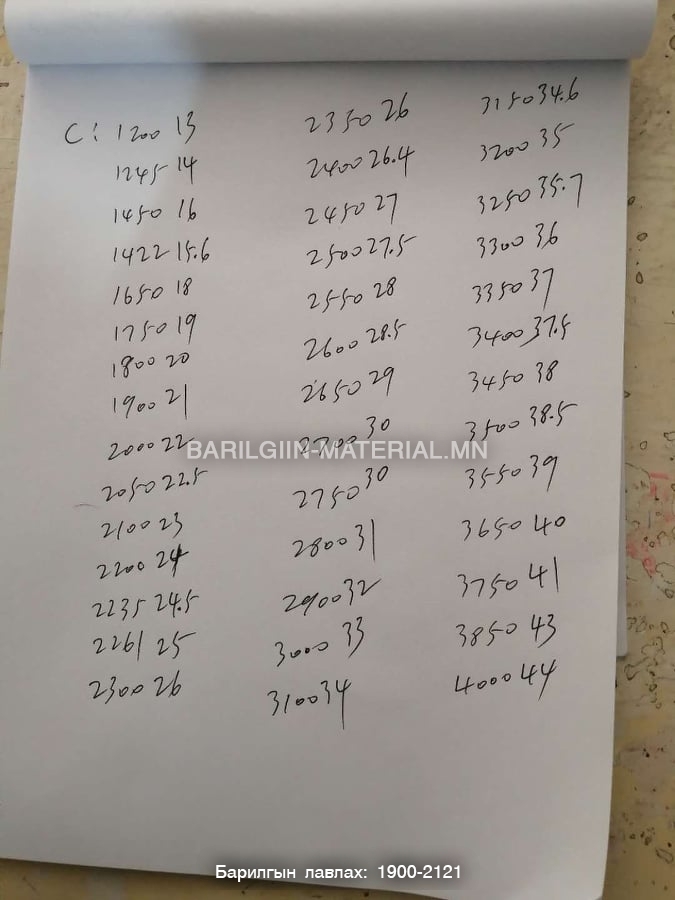 C: 1200 13
1245 14
1450 16
1422 15.6
1650 18
1750 19
1800 20
1900 21
2000 22
2050 22.5
2100 23
2200 24
2235 24.5
2261 25
2300 26
2350 26
2400 26.4
2450 27
2500 27.5
2550 28
2600 28.5
2650 29
2700 30
2750 30
2800 31
2900 32
3000 33
3100 34
3150 34.6
3200 35
3250 35.7
3300 36
3350 37
3400 37.5
3450 38
3500 38.5
3550 39
3650 40
3750 41
3850 43
4000 44
BARILGIIN-MATERIAL.MN
Барилгын лавлах: 1900-2121